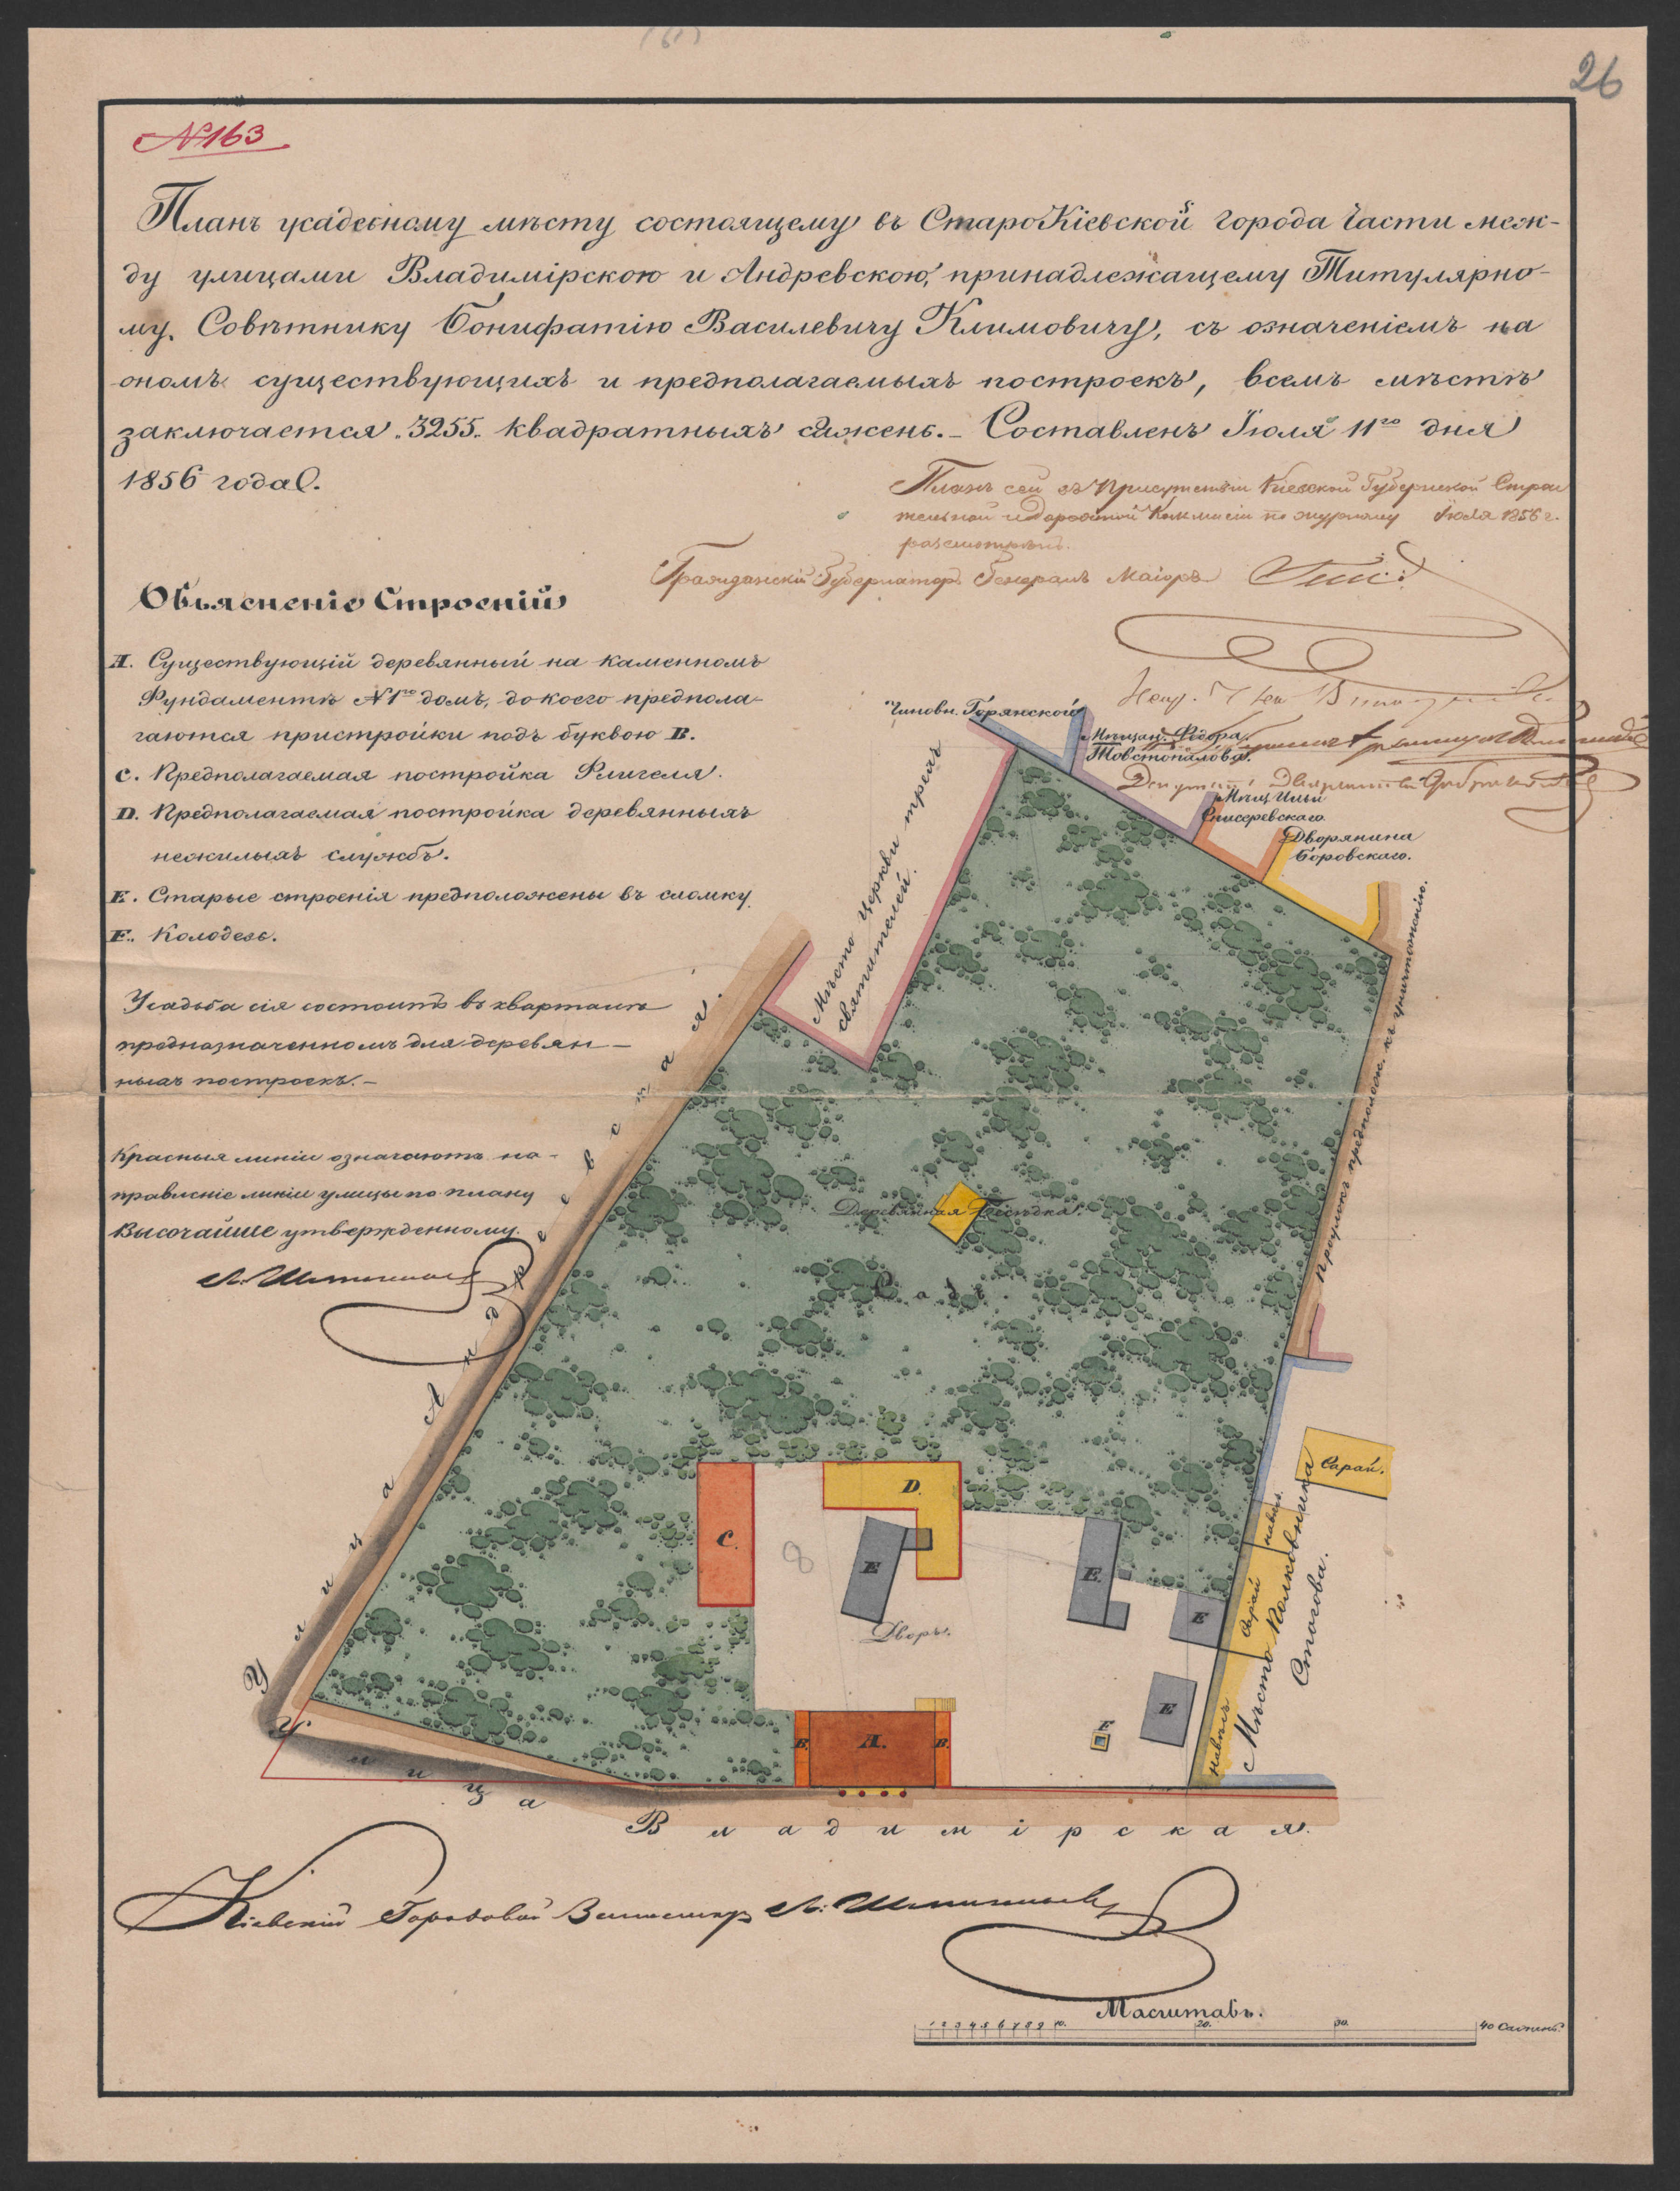 26
№163
Планъ усадебному мѣсту состоящему въ СтароКіевской города части меж-
ду улицами Владимірскою и Андревскою, принадлежащему Титулярно-
му Совѣтнику Бонифатію Василевичу Климовичу, съ означеніемъ на
ономъ существующихъ и предполагаемыхъ построекъ, всемъ мѣстѣ
заключается 3255 квадратныхъ сажень. – Составленъ Іюля 11го дня
1856 года.
Планъ сей въ Присутствіи Кіевской Губернской Строи
тельной и Дорожной Коммисіи по журналу Іюля 1856 г.
разсмотрѣнъ.
Гражданскій Губернаторъ Генералъ Маіоръ
Объясненіе Строеній
А. Существующій деревянный на каменномъ
Фундаментѣ №1го домъ, до коего предпола-
гаются пристройки подъ буквою В.
С. Предполагаемая постройка Флигеля.
D. Предполагаемая постройка деревянныхъ
нежилыхъ службъ.
Е. Старые строенія предположены въ сломку
F. Колодезь.
Усадьба сія состоитъ въ кварталѣ
предназначенномъ для деревян-
ныхъ построекъ. –
Красныя линіи означаютъ на-
правленіе линіи улицы по плану
Высочайше утвержденному
Чиновн. Горянской
Мѣщан. Ѳедора
Товстопалова.
Мѣщ Ильи
Спасеревскаго
Дворянина
Боровскаго.
Мѣсто церкви трехъ
святителей.
Проулокъ предполож. къ уничтоженію.
Улица Андреевская.
Деревянная Бесѣдка.
Садъ.
Сарай.
D.
С.
8
Е
Е.
Е
навѣсъ
Сарай
Мѣсто Полковника
Стогова.
Дворъ.
Е
F
навѣсъ
В.
А.
В.
Улица
Владимірская.
Кіевскій Городовой Землемѣръ
Масштабъ.
1 2 3 4 5 6 7 8 9 10. 20. 30 40 Сажень.